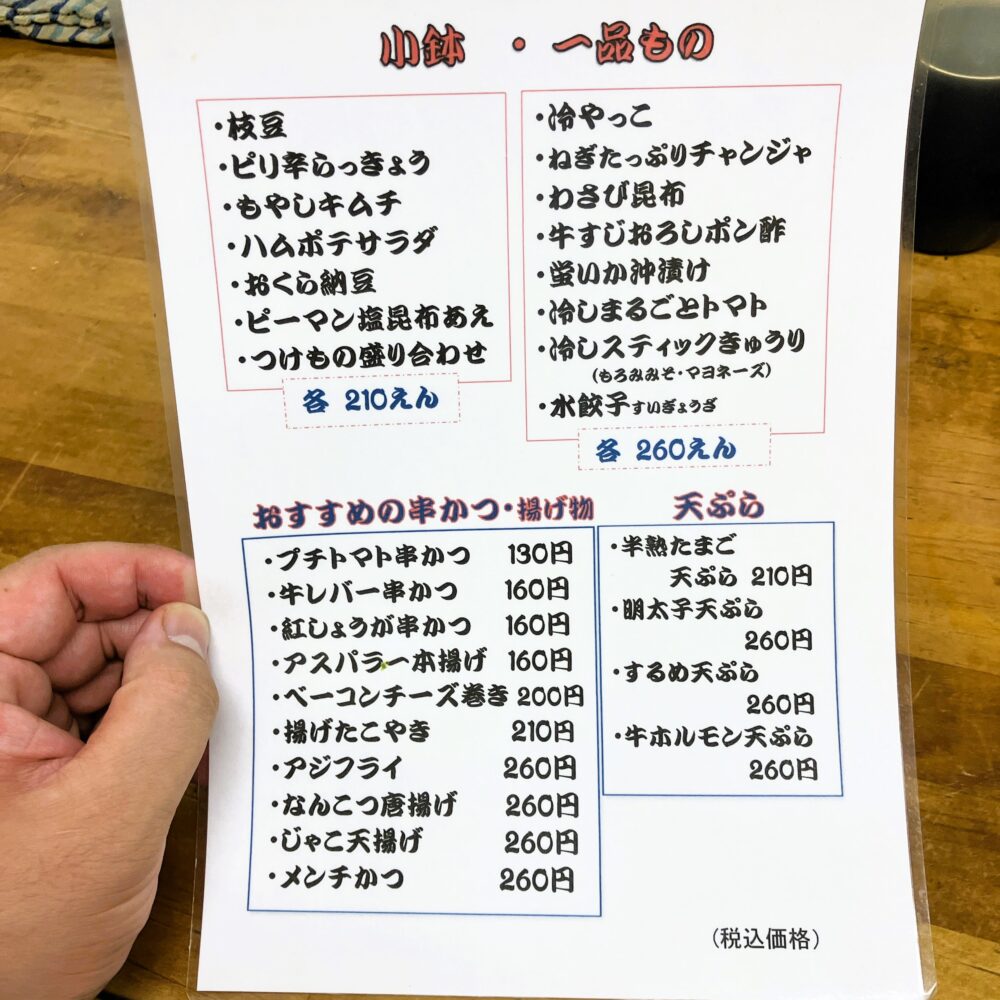 小鉢 ・ 一品もの
・枝豆
・ピリ辛らっきょう
・もやしキムチ
・ハムポテサラダ
・おくら納豆
・ピーマン塩昆布あえ
・つけもの盛り合わせ
各 210えん
・冷やっこ
・ねぎたっぷりチャンジャ
・わさび昆布
・牛すじおろしポン酢
・蛍いか沖漬け
・冷しまるごとトマト
・冷しスティックきゅうり
（もろみみそ・マヨネーズ）
・水餃子すいぎょうざ
各 260えん
おすすめの串かつ・揚げ物
・プチトマト串かつ 130円
・牛レバー串かつ 160円
・紅しょうが串かつ 160円
・アスパラ一本揚げ 160円
・ベーコンチーズ巻き 200円
・揚げたこやき 210円
・アジフライ 260円
・なんこつ唐揚げ 260円
・じゃこ天揚げ 260円
・メンチかつ 260円
天ぷら
・半熟たまご
天ぷら 210円
・明太子天ぷら
260円
・するめ天ぷら
260円
・牛ホルモン天ぷら
260円
（税込価格）